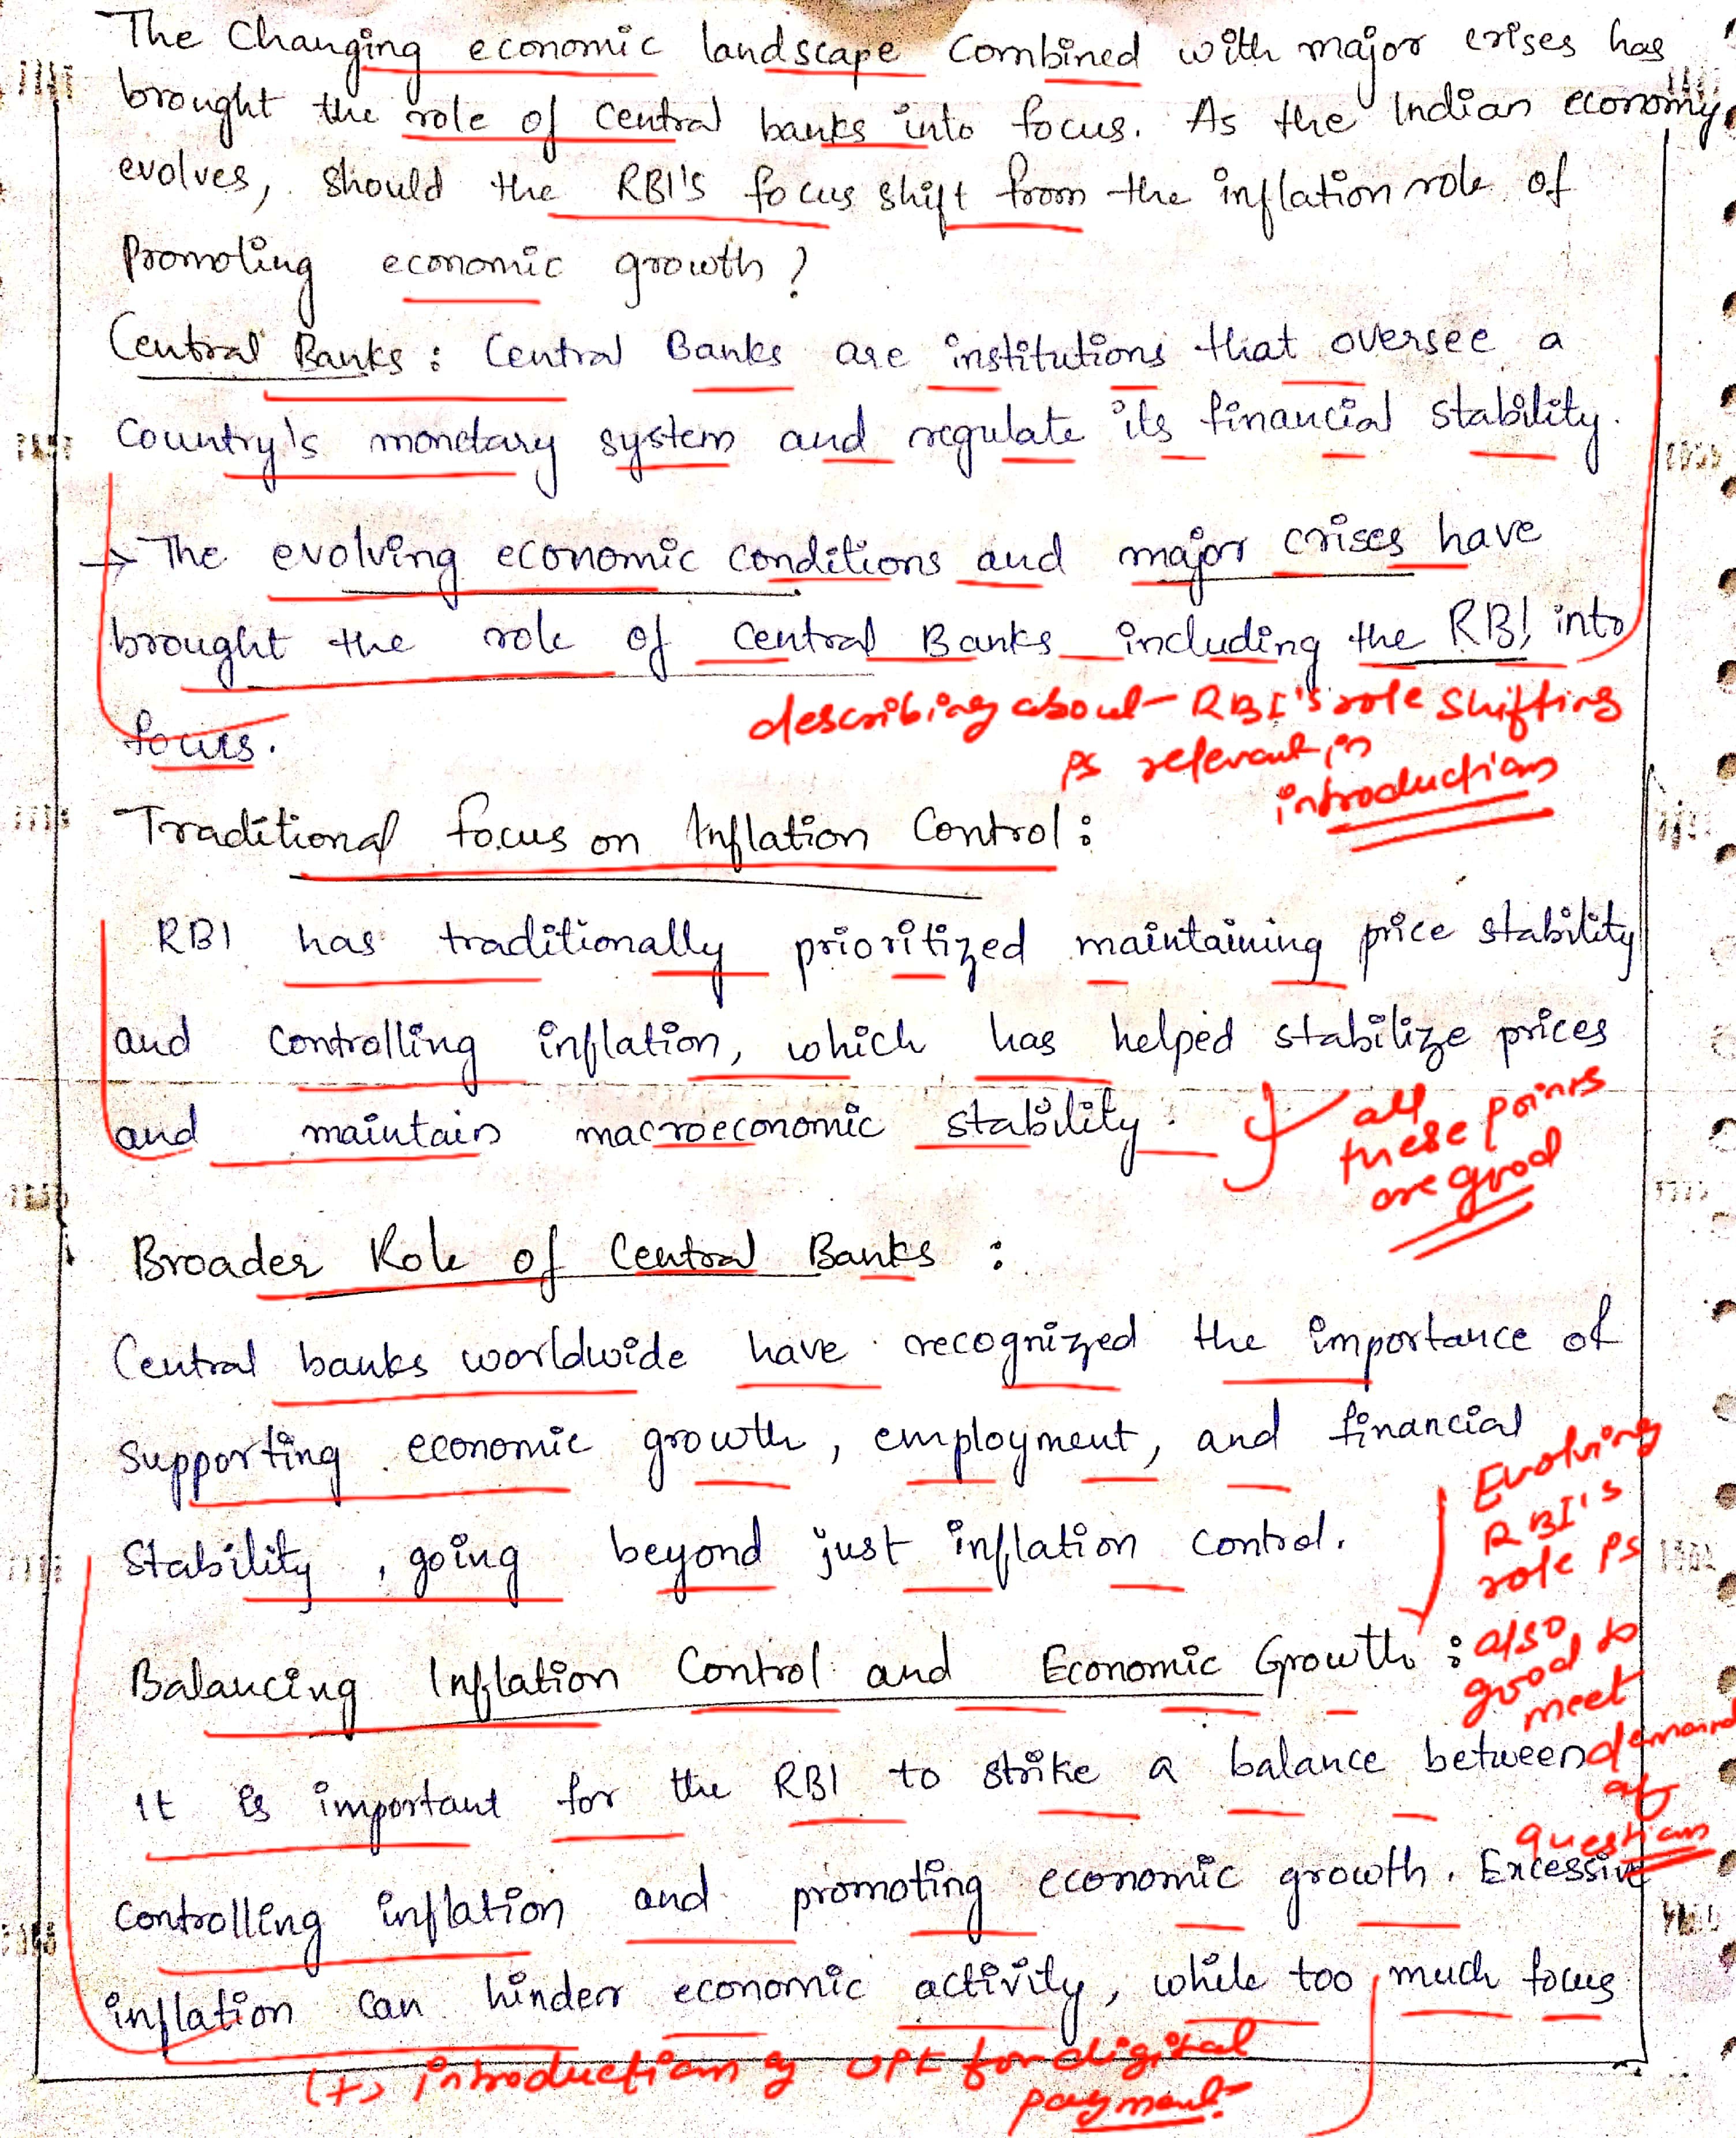 The Changing economic landscape combined with major crises has
brought the role of central banks into focus. As the Indian economy
evolves, should the RBI's focus shift from the inflation role of
promoting economic growth?
Central Banks : Central Banks are institutions that oversee a
Country's monetary system and regulate its financial stability.
→ The evolving economic conditions and major crises have
brought the role of central Banks including the RBI into
focus.
describing about RBI's role shifting
is relevant in
introduction
Traditional focus on Inflation Control :
RBI has traditionally prioritized maintaining price stability
and controlling inflation, which has helped stabilize prices
and maintain macroeconomic stability.
all
these points
are good
Broader Role of Central Banks :
Central banks worldwide have recognized the importance of
supporting economic growth, employment, and financial
stability, going beyond just inflation control.
Evolving
RBI's
role is
also
good to
meet
demand
of
question
Balancing Inflation Control and Economic Growth :
It is important for the RBI to strike a balance between
controlling inflation and promoting economic growth. Excessive
inflation can hinder economic activity, while too much focus
(+) introduction of UPI for digital
payment